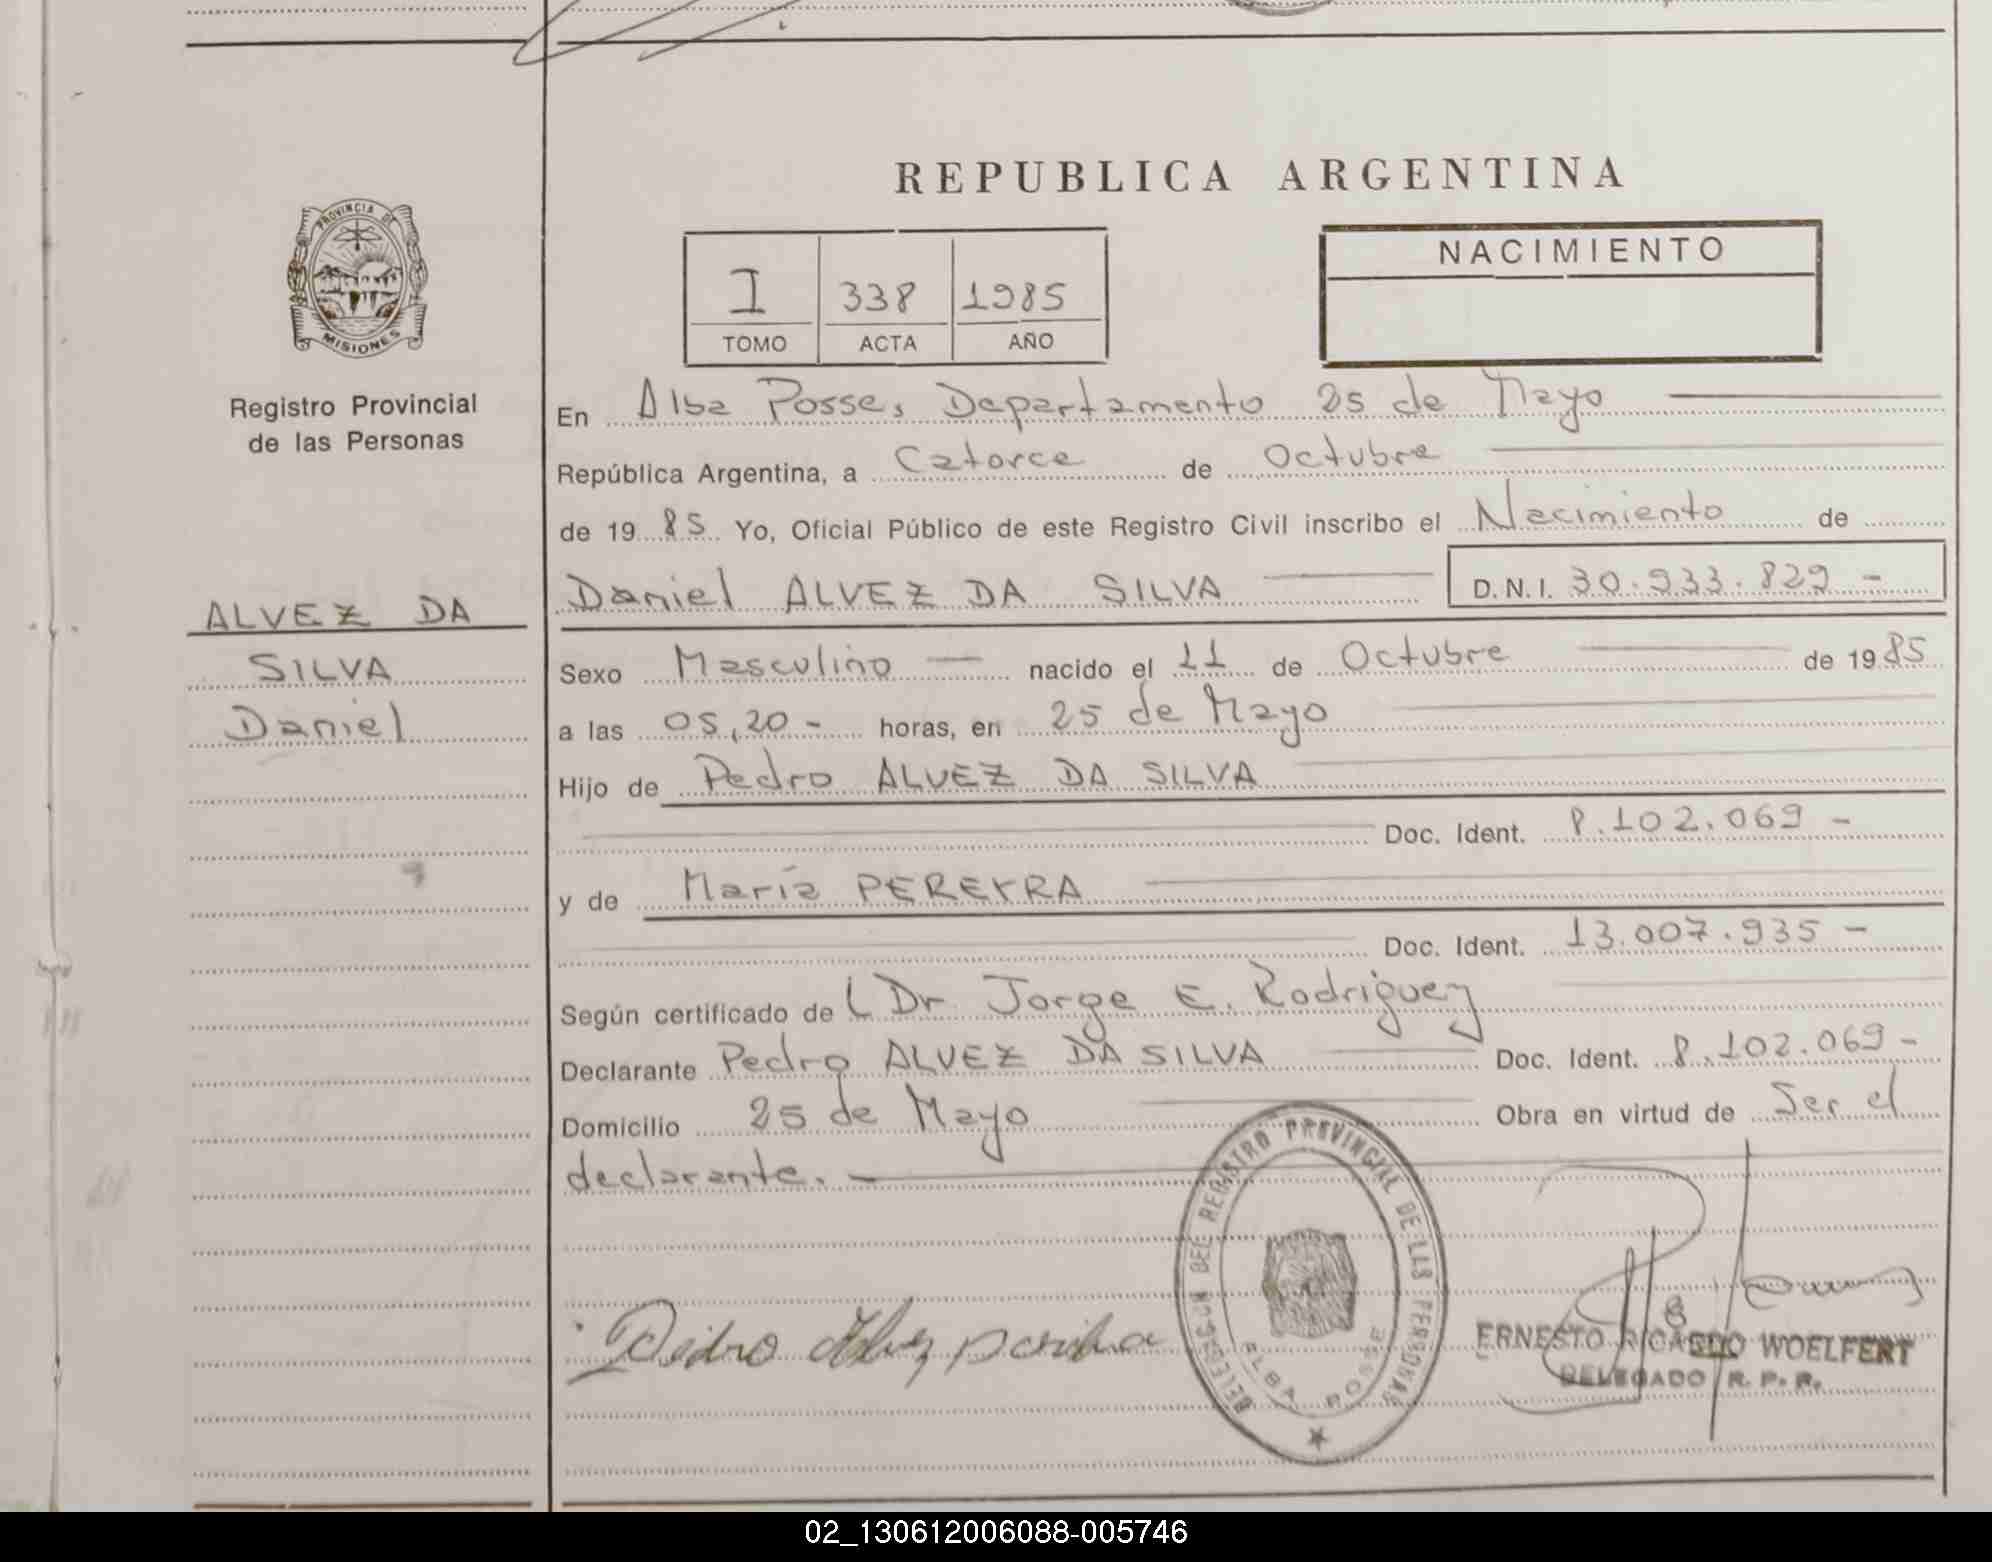 REPUBLICA ARGENTINA
PROVINCIA DE
MISIONES
Registro Provincial
de las Personas
I 338 1985
TOMO ACTA AÑO
NACIMIENTO
En Alba Posse, Departamento 25 de Mayo
República Argentina, a Catorce de Octubre
de 19 85 Yo, Oficial Público de este Registro Civil inscribo el Nacimiento de
Daniel ALVEZ DA SILVA D.N.I. 30.933.829 -
ALVEZ DA
SILVA
Daniel
Sexo Masculino — nacido el 11 de Octubre de 19 85
a las 05,20 - horas, en 25 de Mayo
Hijo de Pedro ALVEZ DA SILVA
Doc. Ident. 8.102.069 -
y de María PEREYRA
Doc. Ident. 13.007.935 -
Según certificado de (Dr. Jorge E. Rodriguez
Declarante Pedro ALVEZ DA SILVA Doc. Ident. 8.102.069 -
Domicilio 25 de Mayo Obra en virtud de Ser el
declarante. —
DELEGACION DEL REGISTRO PROVINCIAL DE LAS PERSONAS
ALBA POSSE
Pedro Alvez
ERNESTO RICARDO WOELFERT
DELEGADO R. P. P.
02_130612006088-005746